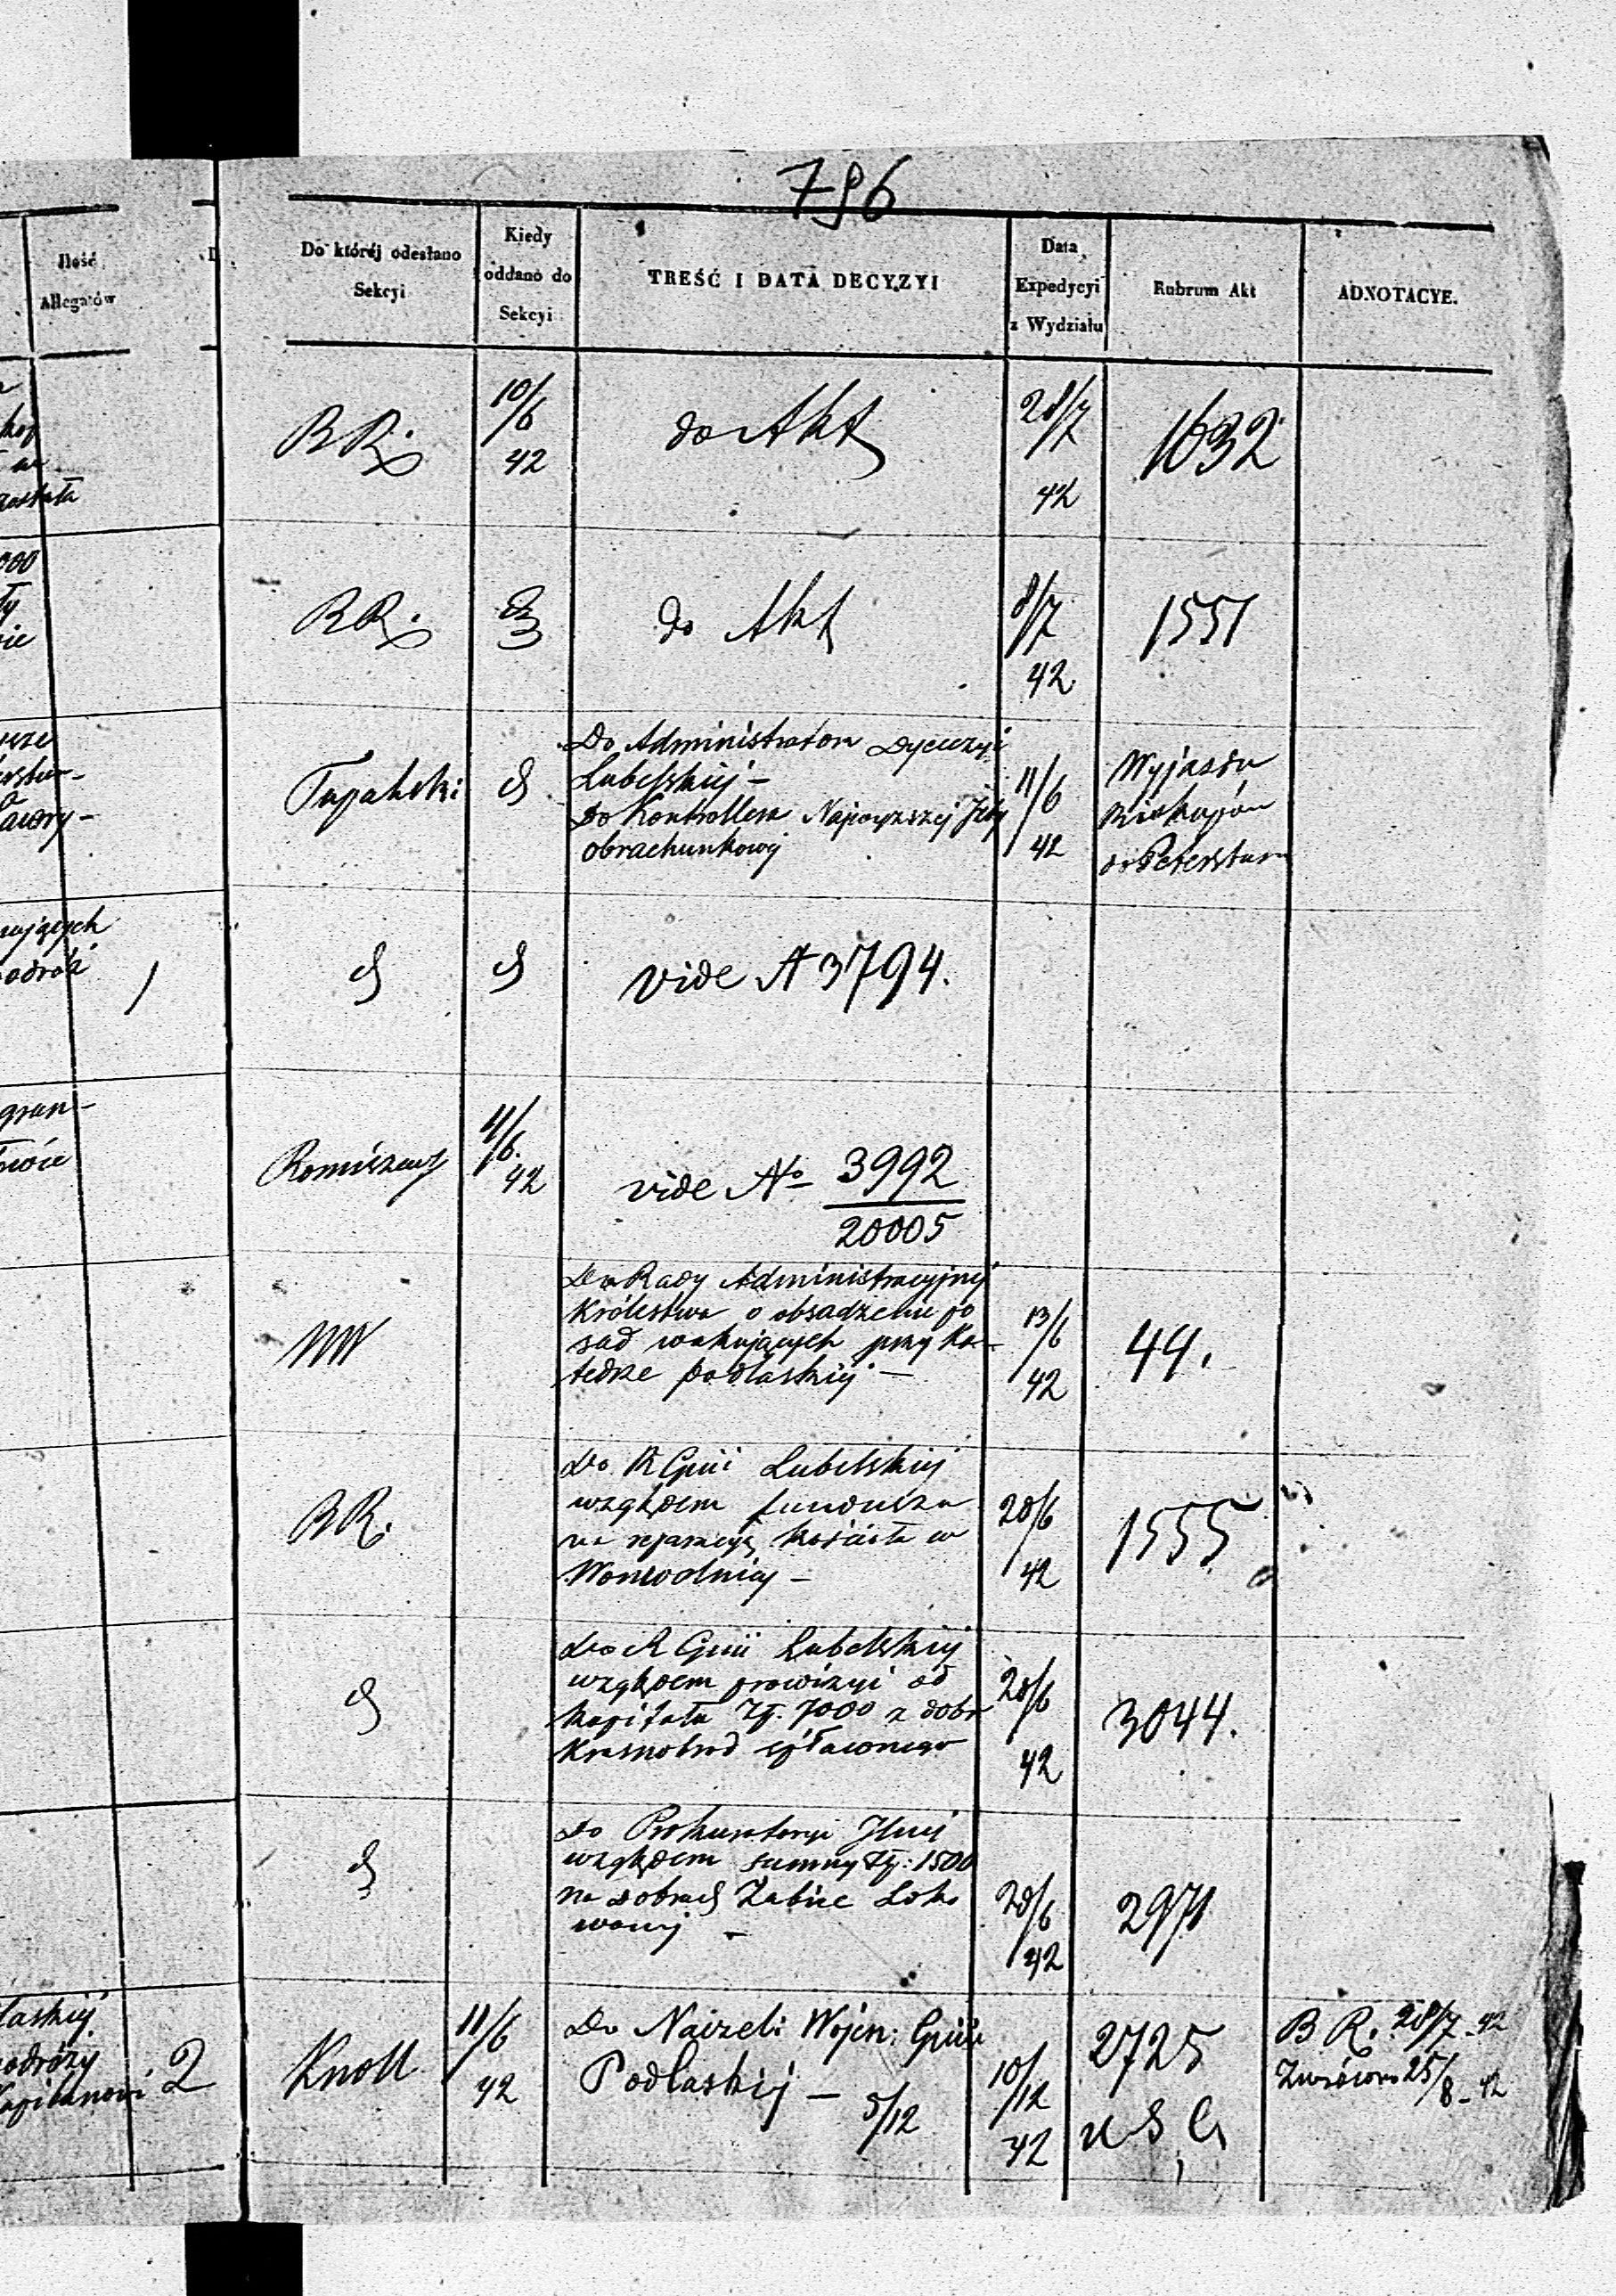 796
Ilość Allegatów
Do któréj odesłano Sekcyi
Kiedy oddano do Sekcyi
TREŚĆ I DATA DECYZYI
Data Expedycyi z Wydziału
Rubrum Akt
ADNOTACYE.
BR. 10/6 42 do Akt 28/7 42 1632
BR. do Akt 8/7 42 1551
Do Administratora Dyecezyi
Lubelskiej –
Do Kontrollera Najwyższej Izby
obrachunkowej
11/6 42
Wyjazdu
Biskupów
do Petersbur
1
vide N 3794.
4/6. 42
vide No 3992
20005
Do Rady Administracyjnej
Królestwa o obsadzeniu po
sad wakujących przy Ka-
tedrze podlaskiej –
13/6 42
44.
BR.
Do R Gnii Lubelskiej
względem funduszu
na reparacyę kościoła w
–
28/6 42
1555
Do R Gnii Lubelskiej
względem prowizyi od
kapitału Zł. 7000 z dóbr
Krasnobrod
28/6 42
3044.
Do Prokuratoryi Jlnej
względem summy Zł: 1500
na dobrach Żabice Loko
wanej –
28/6 42
2971
laskiej
podróży
Kapitanowi
2
Knoll
11/6 42
Do Naczel: Wojen: Gnii
Podlaskiej – 5/12
10/12 42
2725
BR. 28/7 – 42
Zwrócono 25/8 – 42